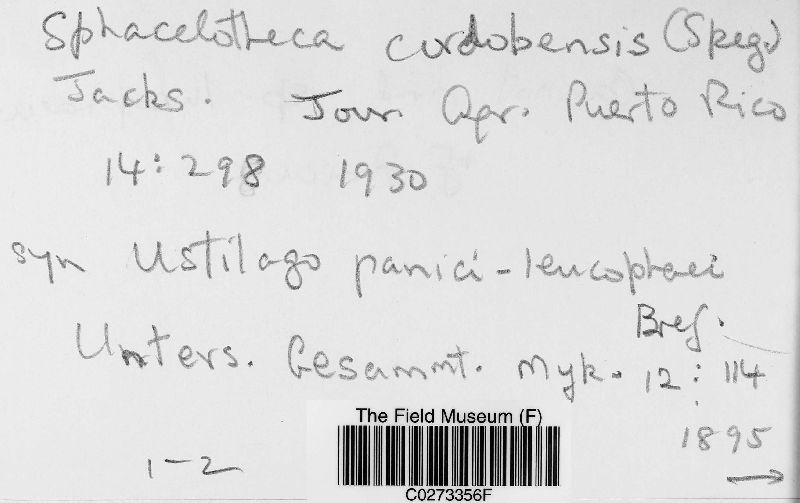 Sphacelotheca cordobensis (Speg.)
Jacks. Jour. Agr. Puerto Rico
14: 298 1930
syn Ustilago panici-leucophaei
Bref.
Unters. Gesammt. Myk. 12: 114
1895
1-2 →
The Field Museum (F)
C0273356F